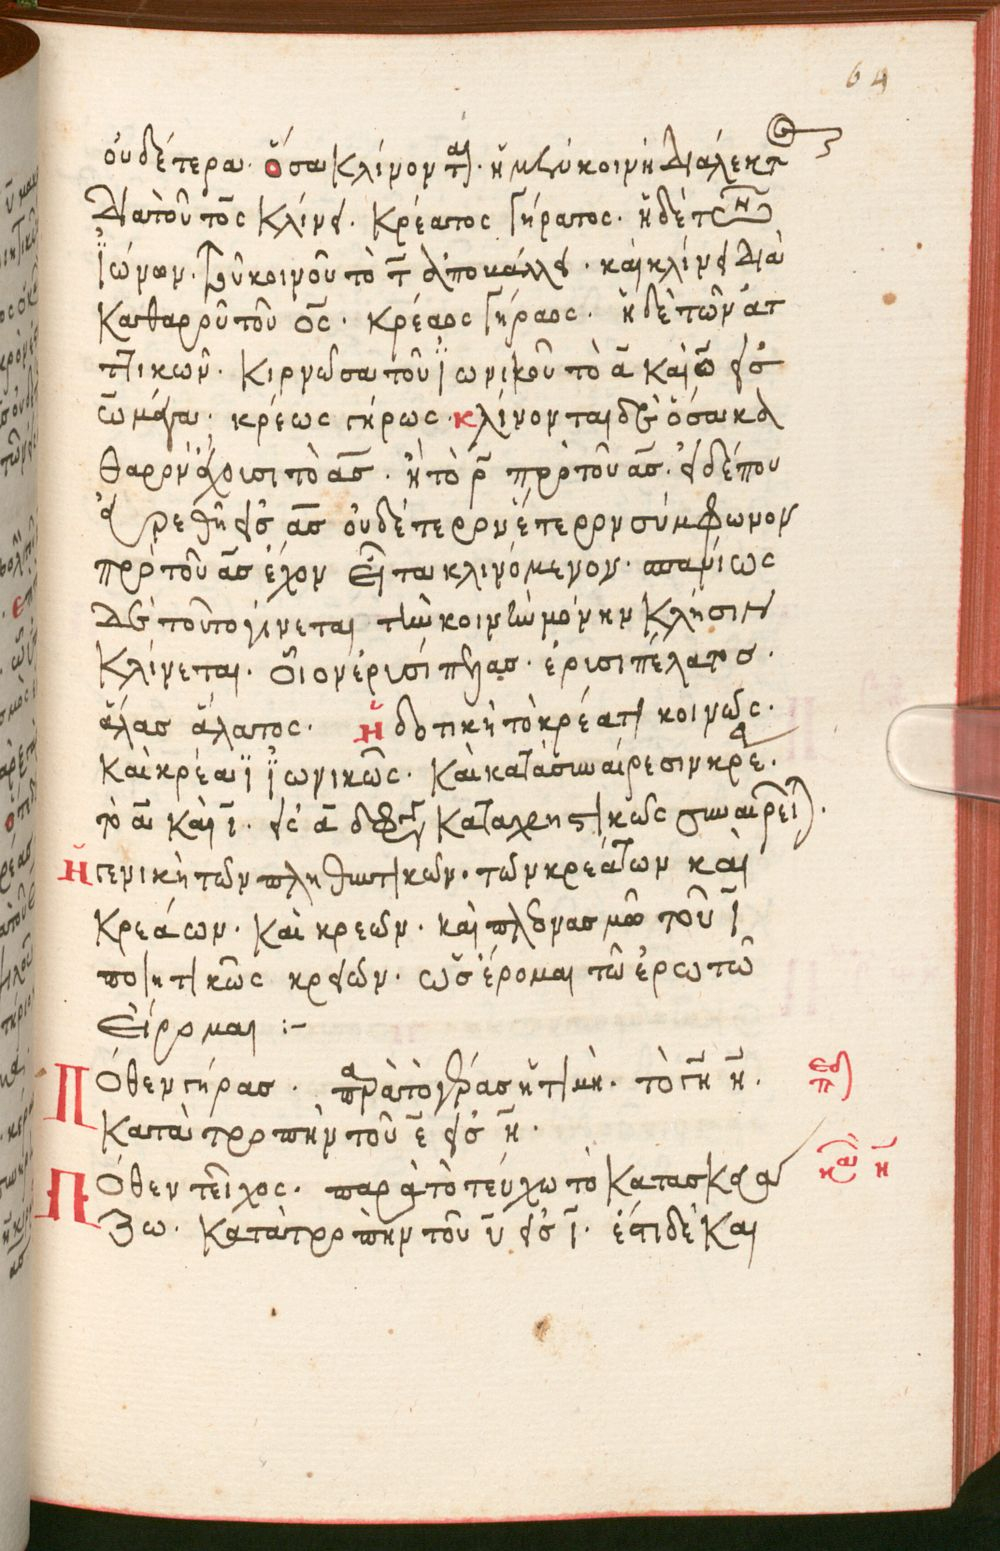 64
οὐδέτερα. ὅσα κλίνονται. ἡ μὲν κοινὴ διάλεκτος
διὰ τοῦ τος κλίνει. κρέατος γήρατος. ἡ δὲ τῶν
ἰώνων. τοῦ κοινοῦ τὸ τ ἀποβάλλει. καὶ κλίνει διὰ
καθαροῦ τοῦ ος. κρέαος γήραος. ἡ δὲ τῶν ἀτ
τικῶν. κιρνῶσα τοῦ ἰωνικοῦ τὸ α καὶ ο εἰς
ω μέγα. κρέως γήρως. κλίνονται δὲ ὅσα κα
θαρὸν ἔχουσι τὸ ας. ἢ τὸ ρ πρὸ τοῦ ας. εἰ δέ που
εὑρεθῇ εἰς ας οὐδέτερον ἕτερον σύμφωνον
πρὸ τοῦ ας ἔχον εἶτα κλινόμενον. σπανίως
δὲ τοῦτο γίνεται τὴν κοινὴν μόνην κλῆσιν
κλίνεται. οἷον ἐρισίπελας. ἐρισιπέλατος.
ἅλας ἅλατος. ἡ δοτικὴ τὸ κρέατι κοινῶς.
καὶ κρέαϊ ἰωνικῶς. καὶ κατὰ συναίρεσιν κρέᾳ.
τὸ α καὶ ι. εἰς α δίφθογγον καταχρηστικῶς συναιρεῖται.
ἡ γενικὴ τῶν πληθυντικῶν. τῶν κρεάτων καὶ
κρεάων. καὶ κρεῶν. καὶ πλεονασμῷ τοῦ ι
ποιητικῶς κρειῶν. ὡς ἔρομαι τὸ ἐρωτῶ
εἴρομαι :-
Πόθεν γήρας. παρὰ τὸ γέρας ἡ τιμή. τὸ γη η.
κατὰ τροπὴν τοῦ ε εἰς η.
Πόθεν τεῖχος. παρὰ τὸ τεύχω τὸ κατασκευά
ζω. κατὰ τροπὴν τοῦ υ εἰς ι. ἐπιδὲ καὶ